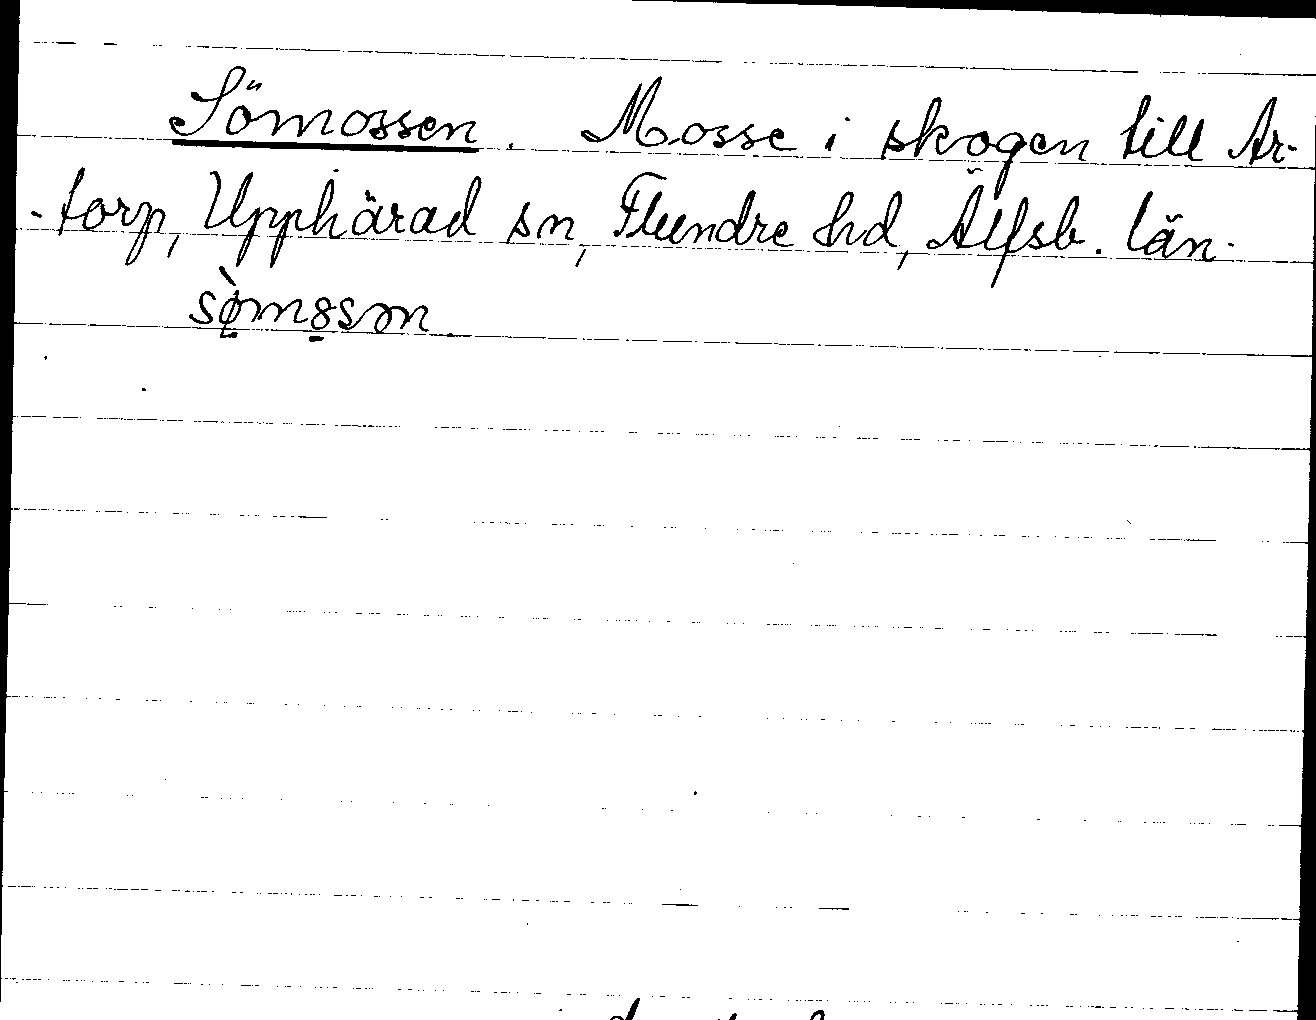 Sömossen. Mosse i skogen till Ar-
-torp, Upphärad sn, Flundre hd, Älfsb. län.
sø̀mȣsən